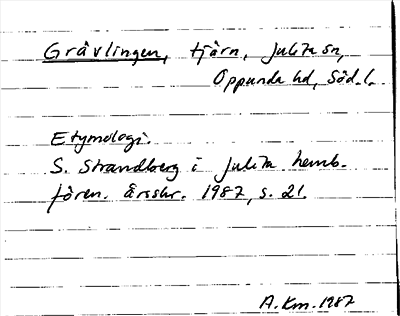 Grävlingen, tjärn, Julita sn,
Oppunda hd, Söd. l.
Etymologi.
S. Strandberg i Julita hemb.
fören. årsskr. 1987, s. 21.
A. Km. 1987